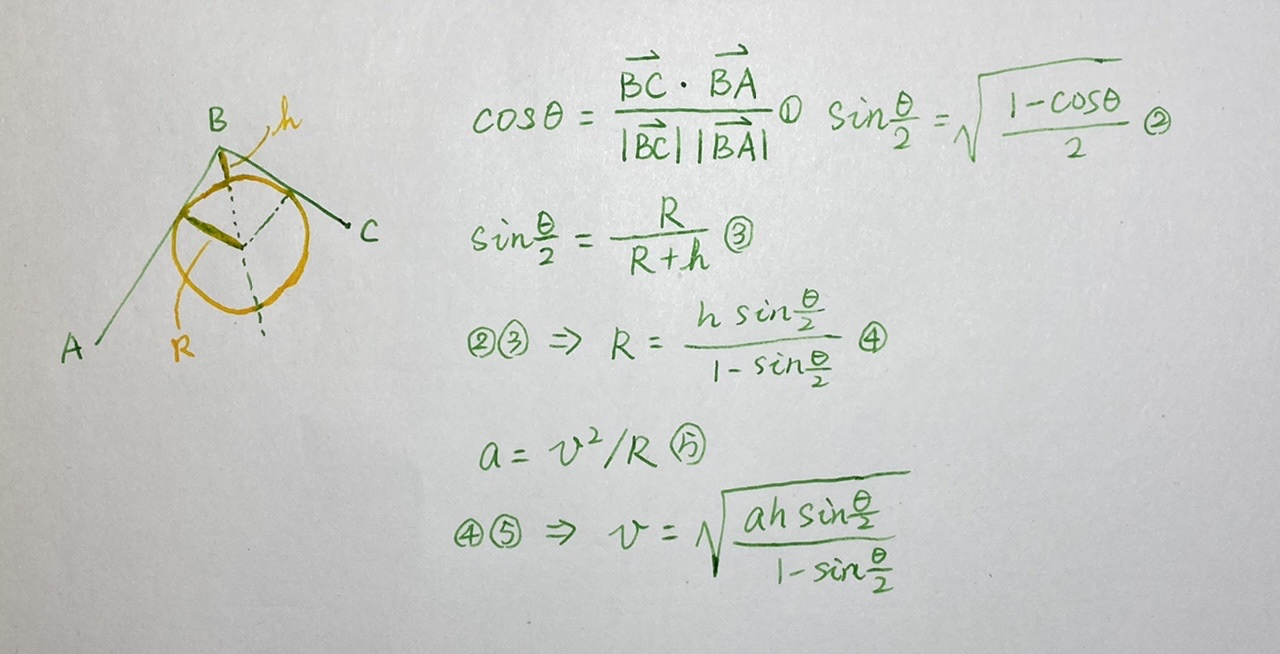 B
h
A
C
R
cosθ = (BC⃗ · BA⃗) / (|BC⃗| |BA⃗|) ① sin θ/2 = √((1-cosθ)/2) ②
sin θ/2 = R / (R+h) ③
②③ ⇒ R = (h sin θ/2) / (1- sin θ/2) ④
a = v²/R ⑤
④⑤ ⇒ v = √((ah sin θ/2) / (1-sin θ/2))